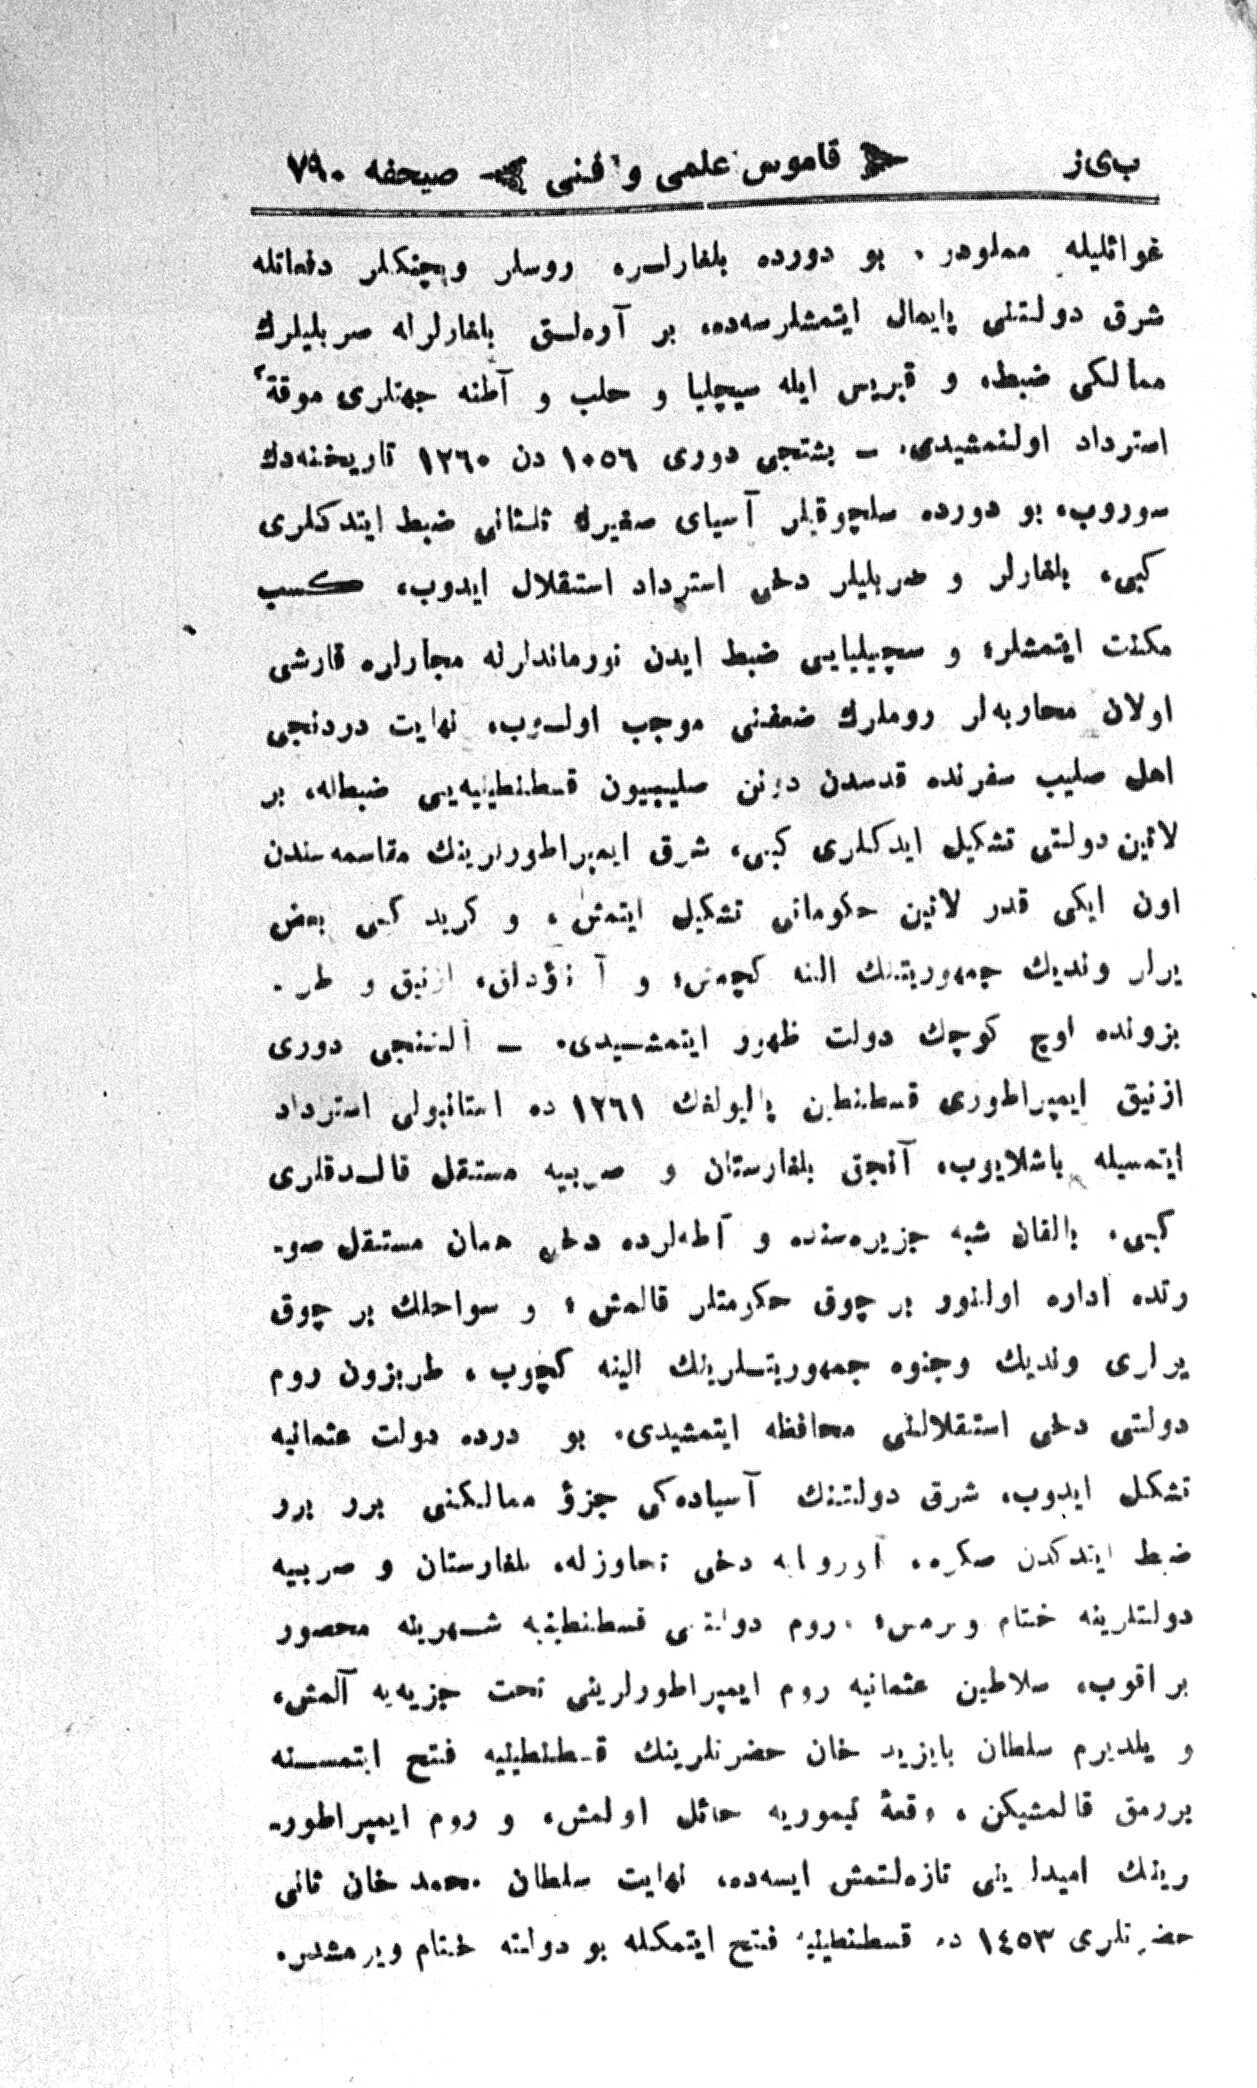 ب‌ی‌ز قاموس علمی و فنی صیحفه ٧٩٠
غوائلیله مملودر. بو دورده بلغارلره روسلر و پچنكلر دفعاتله
شرق دولتنی پایمال ایتمشلرسه‌ده، بر آره‌لق بلغارلرله صربلیلرك
ممالكی ضبط، و قبریس ایله سیچلیا و حلب و آطنه جهتلری موقةً
استرداد اولنمشیدی. ـ بشنجی دوری ١٠٥٦ دن ١٢٦٠ تاریخنه‌دك
سوروب، بو دورده سلچوقیلر آسیای صغیرك ثلثانی ضبط ایتدكلری
كبی، بلغارلر و صربلیلر دخی استرداد استقلال ایدوب، كسب
مكنت ایتمشلر؛ و سچیلیایی ضبط ایدن نورماندلرله مجارلره قارشی
اولان محاربه‌لر روملرك ضعفنی موجب اولوب، نهایت دردنجی
اهل صلیب سفرنده قدسدن دونن صلیبیون قسطنطینیه‌یی ضبطله، بر
لاتین دولتی تشكیل ایدكلری كبی، شرق ایمپراطورلرینك مقاسمه سندن
اون ایكی قدر لاتین حكوماتی تشكیل ایتمش، و كرید كبی بعض
یرلر وندیك جمهوریتنك النه كچمش؛ و ازنیق و طر ـ
بزونده اوچ كوچك دولت ظهور ایتمشیدی. ـ آلتنجی دوری
ازنیق ایمپراطوری قسطنطین پالیولغك ١٢٦١ ده استانبولی استرداد
ایتمسیله باشلایوب، آنجق بلغارستان و صربیه مستقل قالدقلری
كبی، بالقان شبه جزیره‌سنده و آطه‌لرده دخی همان مستقل صو ـ
رتده اداره اولنور بر چوق حكومتلر قالمش؛ و سواحلك بر چوق
یرلری وندیك وجنوه جمهوریتلرینك الینه كچوب، طربزون روم
دولتی دخی استقلالنی محافظه ایتمشیدی. بو درده دولت عثمانیه
تشكل ایدوب، شرق دولتنك آسیاده‌كی جزؤ ممالكنی برر برر
ضبط ایتدكدن صكره، آوروپایه دخی تجاوزله، بلغارستان و صربیه
دولتلرینه ختام ویرمش؛ روم دولتنی قسطنطینیه شهرینه محصور
براقوب، سلاطین عثمانیه روم ایمپراطورلرینی تحت جزیه‌یه آلمش،
و یلدیرم سلطان بایزید خان حضرتلرینك قسطنطینیه فتح ایتمسنه
بررمق قالمشیكن، وقعهٔ تیموریه حائل اولمش، و روم ایمپراطور ـ
رینك امیدلرینی تازه‌لتمش ایسه‌ده، نهایت سلطان محمد خان ثانی
حضرتلری ١٤٥٣ ده قسطنطینیه فتح ایتمكله بو دولته ختام ویرمشدر.